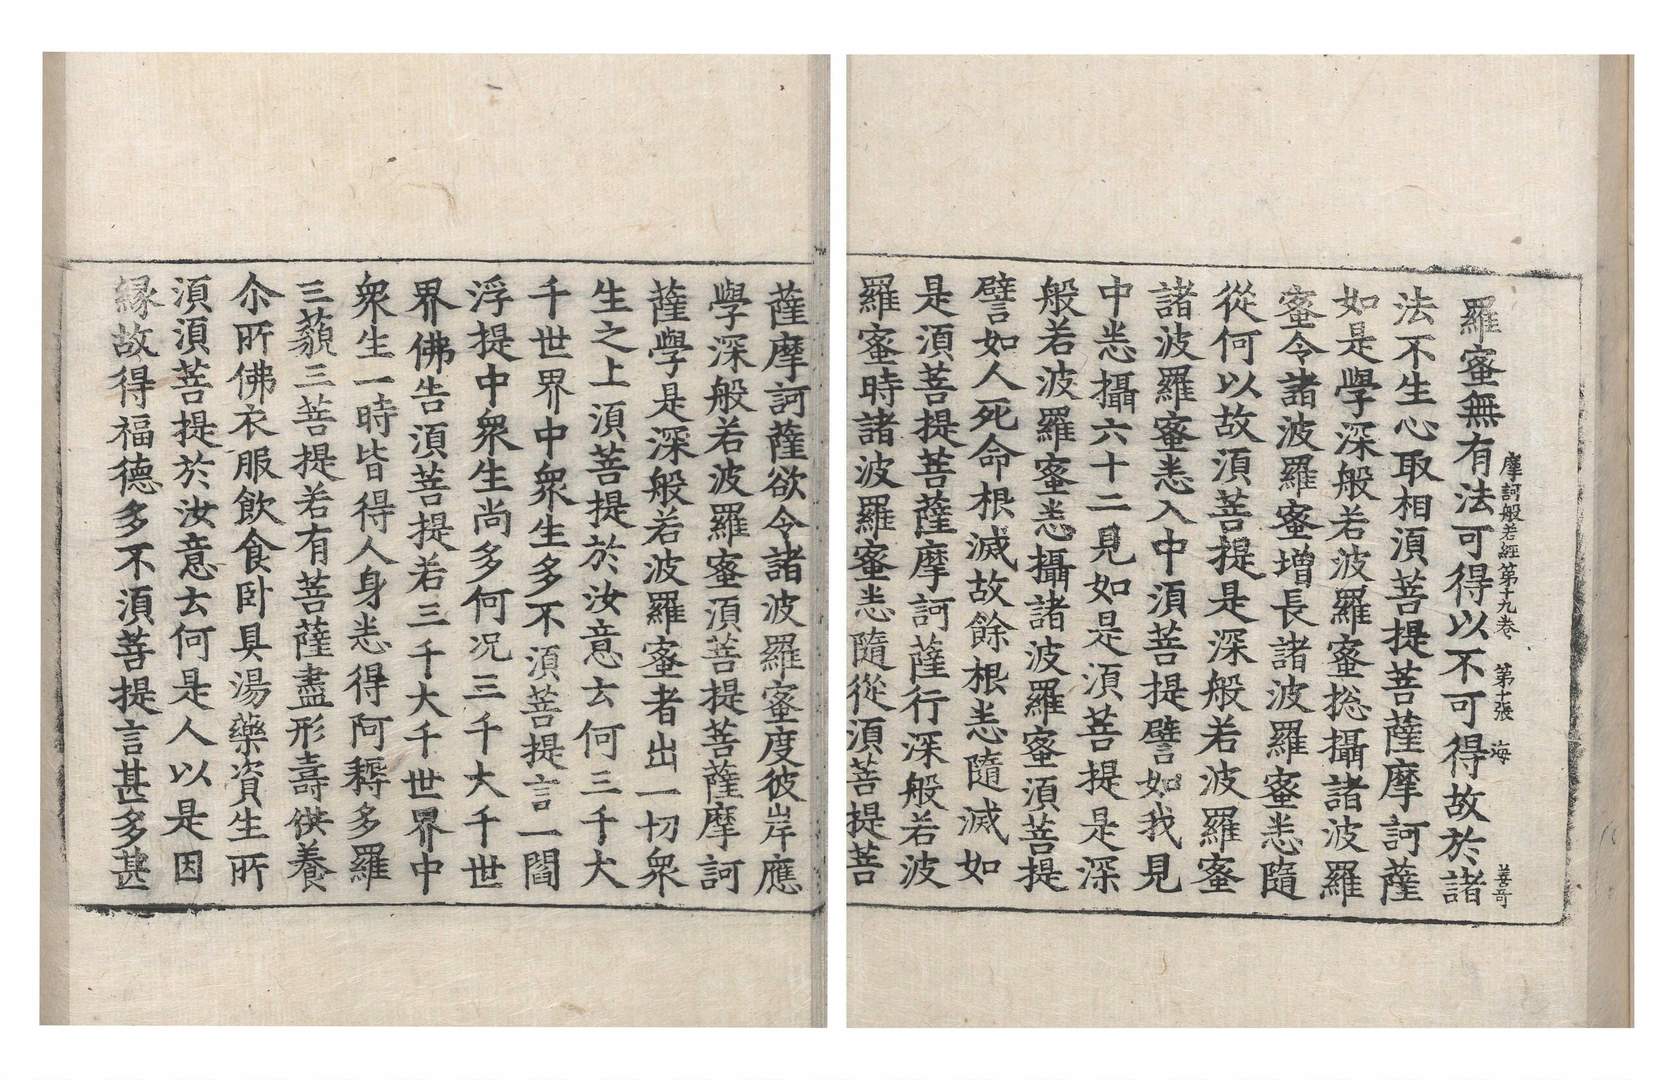 摩訶般若經第十九卷　第十張　海　善哥
羅蜜無有法可得以不可得故於諸
法不生心取相湏菩提菩薩摩訶薩
如是學深般若波羅蜜捴攝諸波羅
蜜令諸波羅蜜增長諸波羅蜜悉隨
從何以故湏菩提是深般若波羅蜜
諸波羅蜜悉入中湏菩提譬如我見
中悉攝六十二見如是湏菩提是深
般若波羅蜜悉攝諸波羅蜜湏菩提
譬如人死命根滅故餘根悉隨滅如
是湏菩提菩薩摩訶薩行深般若波
羅蜜時諸波羅蜜悉隨從湏菩提菩
薩摩訶薩欲令諸波羅蜜度彼岸應
學深般若波羅蜜湏菩提菩薩摩訶
薩學是深般若波羅蜜者出一切衆
生之上湏菩提於汝意云何三千大
千世界中衆生多不湏菩提言一閻
浮提中衆生尚多何况三千大千世
界佛告湏菩提若三千大千世界中
衆生一時皆得人身悉得阿耨多羅
三藐三菩提若有菩薩盡形壽供養
尒所佛衣服飲食卧具湯藥資生所
湏湏菩提於汝意云何是人以是因
緣故得福德多不湏菩提言甚多甚